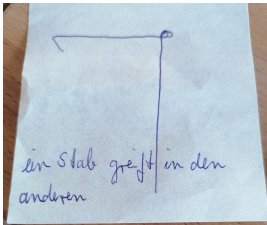 ein Stab greift in den
anderen